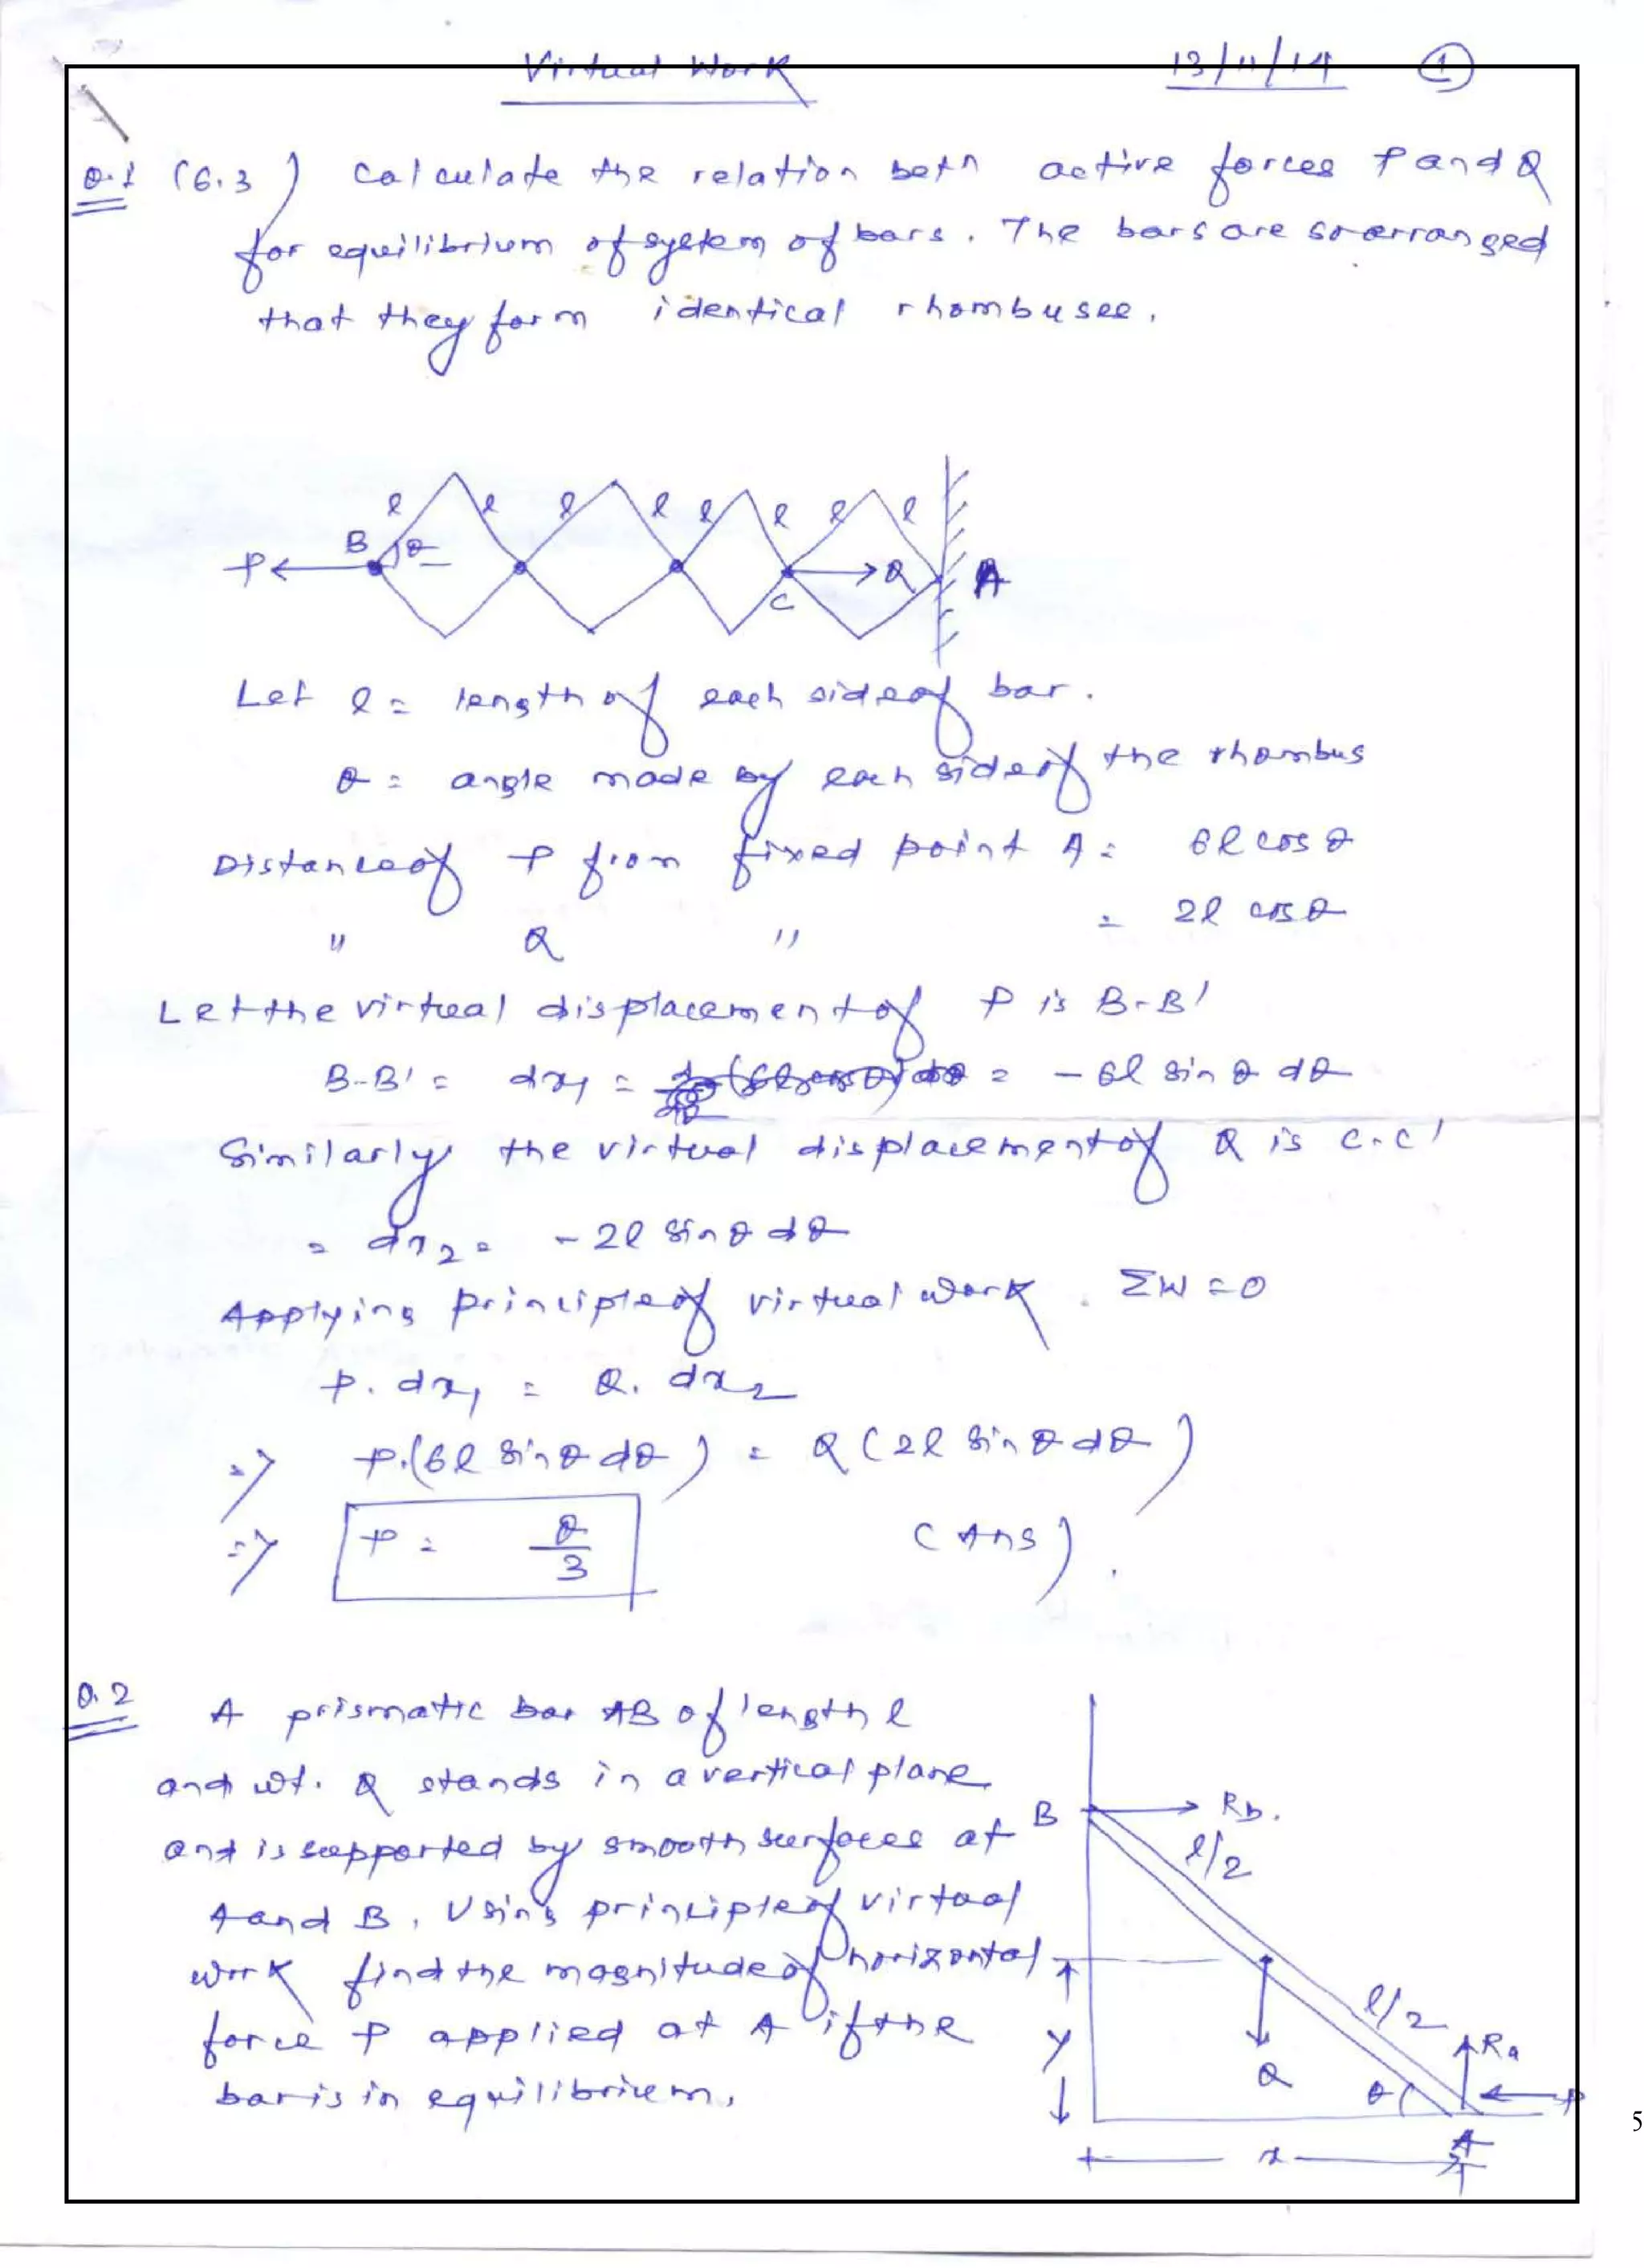 Virtual Work 13/11/14 1
Q.1 (6.3) Calculate the relation betn active forces P and Q
for equilibrium of system of bars. The bars are so arranged
that they form identical rhombuses.
l l l l l l l l
P B θ C Q A
Let l = length of each side of bar.
θ = angle made by each side of the rhombus
Distance of P from fixed point A = 6l cos θ
" Q " = 2l cos θ
Let the virtual displacement of P is B-B'
B-B' = dx₁ = = -6l sin θ dθ
Similarly the virtual displacement of Q is C-C'
= dx₂ = -2l sin θ dθ
Applying principle of virtual work. ΣW = 0
P. dx₁ = Q. dx₂
=> P.(6l sin θ dθ) = Q (2l sin θ dθ)
=> P = Q/3 (Ans).
Q.2 A prismatic bar AB of length l
and wt. Q stands in a vertical plane
and is supported by smooth surfaces at
A and B. Using principle of virtual
work find the magnitude of horizontal
force P applied at A if the
bar is in equilibrium.
B Rb.
l/2
l/2
y Q θ Ra P
A
x
5